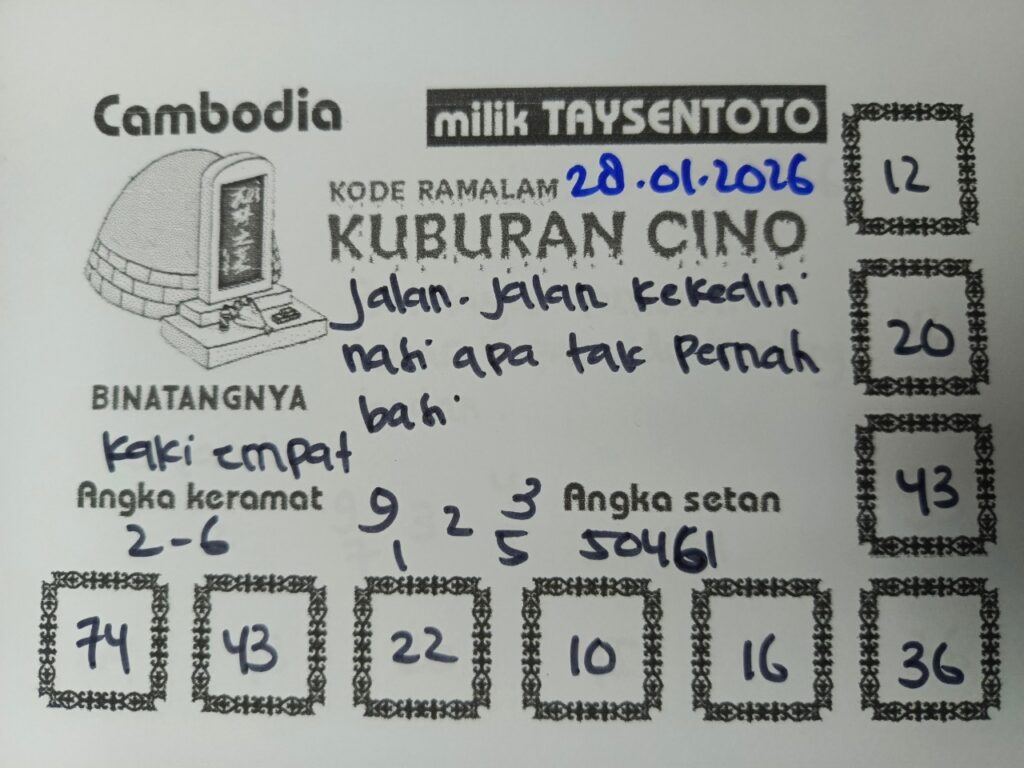 Cambodia
milik TAYSENTOTO
KODE RAMALAM 28.01.2026
KUBURAN CINO
Jalan-Jalan kekediri
nasi apa tak pernah
basi
BINATANGNYA
kaki empat
Angka keramat
2-6
9 2 3
1 5
Angka setan
50461
12
20
43
74 43 22 10 16 36